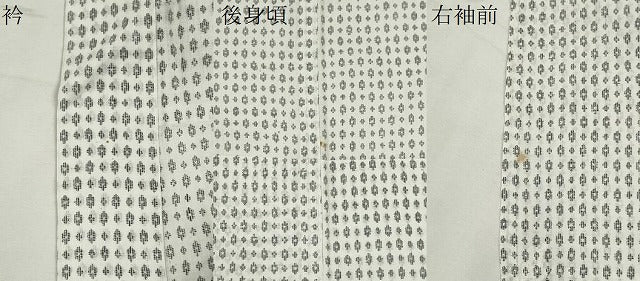 衿
後身頃
右袖前